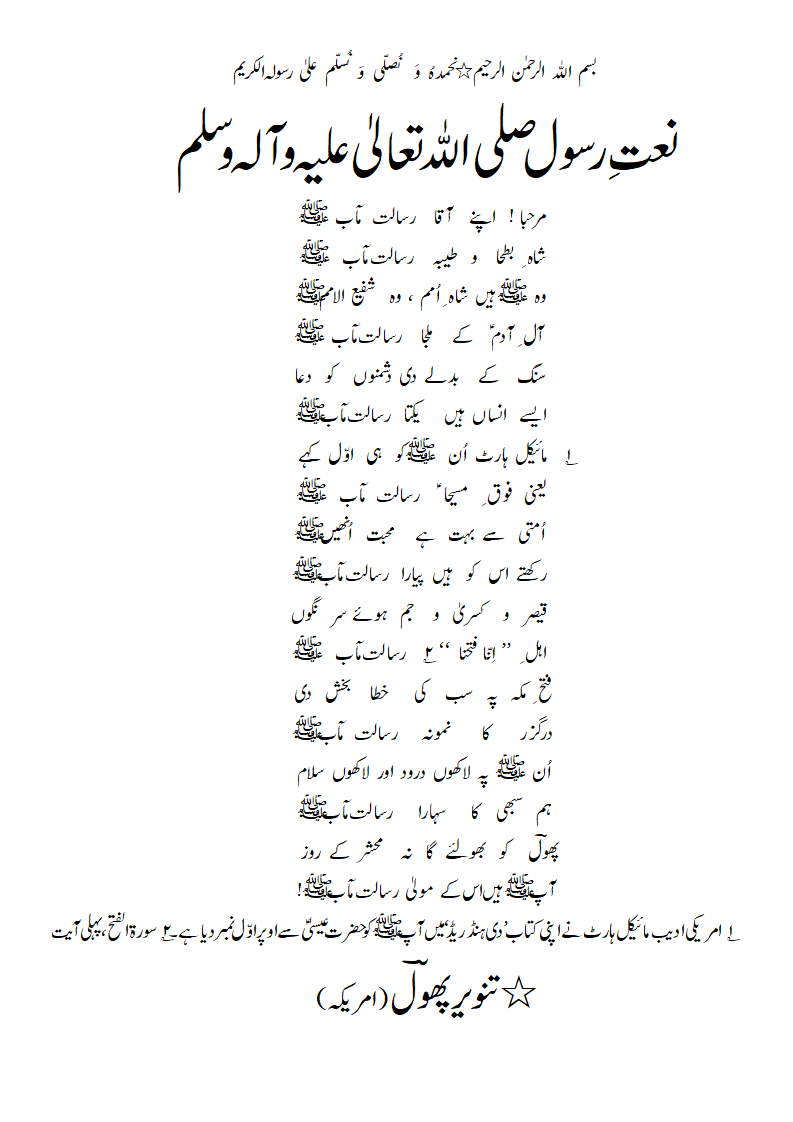 بسم اللہ الرحمٰن الرحیم☆نحمدہٗ وَ نُصلّی وَ نُسلّم علیٰ رسولہ الکریم
نعتِ رسول صلی اللہ تعالیٰ علیہ وآلہ وسلم
مرحبا ! اپنے آقا رسالت مآب ﷺ
شاہِ بطحا و طیبہ رسالت مآب ﷺ
وہ ﷺ ہیں شاہِ اُمم ، وہ شفیع الامم ﷺ
آلِ آدمؑ کے ملجا رسالت مآب ﷺ
سنگ کے بدلے دی دشمنوں کو دعا
ایسے انساں ہیں یکتا رسالت مآب ﷺ
۱ مائیکل ہارٹ اُن ﷺ کو ہی اوّل کہے
یعنی فوقِ مسیحاؑ رسالت مآب ﷺ
اُمتی سے بہت ہے محبت اُنھیں ﷺ
رکھتے اس کو ہیں پیارا رسالت مآب ﷺ
قیصر و کسریٰ و جم ہوئے سر نگوں
اہلِ ’’ اِنّا فتحنا ‘‘ ۲ رسالت مآب ﷺ
فتحِ مکہ پہ سب کی خطا بخش دی
درگزر کا نمونہ رسالت مآب ﷺ
اُن ﷺ پہ لاکھوں درود اور لاکھوں سلام
ہم سبھی کا سہارا رسالت مآب ﷺ
پھولؔ کو بھولئے گا نہ محشر کے روز
آپ ﷺ ہیں اس کے مولیٰ رسالت مآب ﷺ !
۱ امریکی ادیب مائیکل ہارٹ نے اپنی کتاب ’دی ہنڈریڈ‘ میں آپ ﷺ کو حضرت عیسیٰؑ سے اوپر اوّل نمبر دیا ہے۔ ۲ سورۃ الفتح ، پہلی آیت
☆ تنویر پھولؔ (امریکہ)